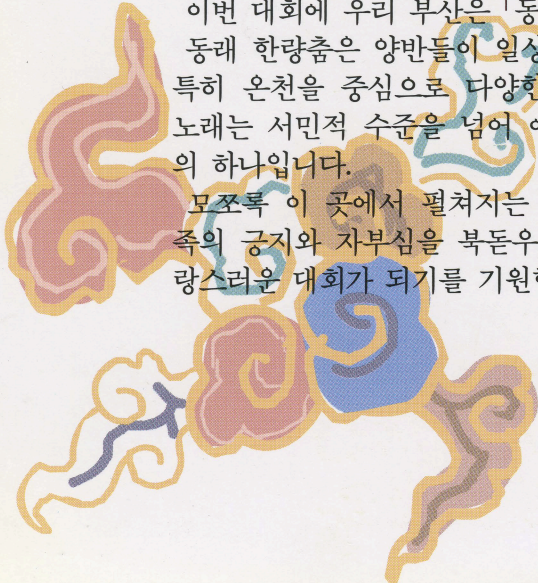 이번 대회에 우리 부산은 「동
동래 한량춤은 양반들이 일상
특히 온천을 중심으로 다양한
노래는 서민적 수준을 넘어
의 하나입니다.
모쪼록 이 곳에서 펼쳐지는
족의 긍지와 자부심을 북돋우
랑스러운 대회가 되기를 기원